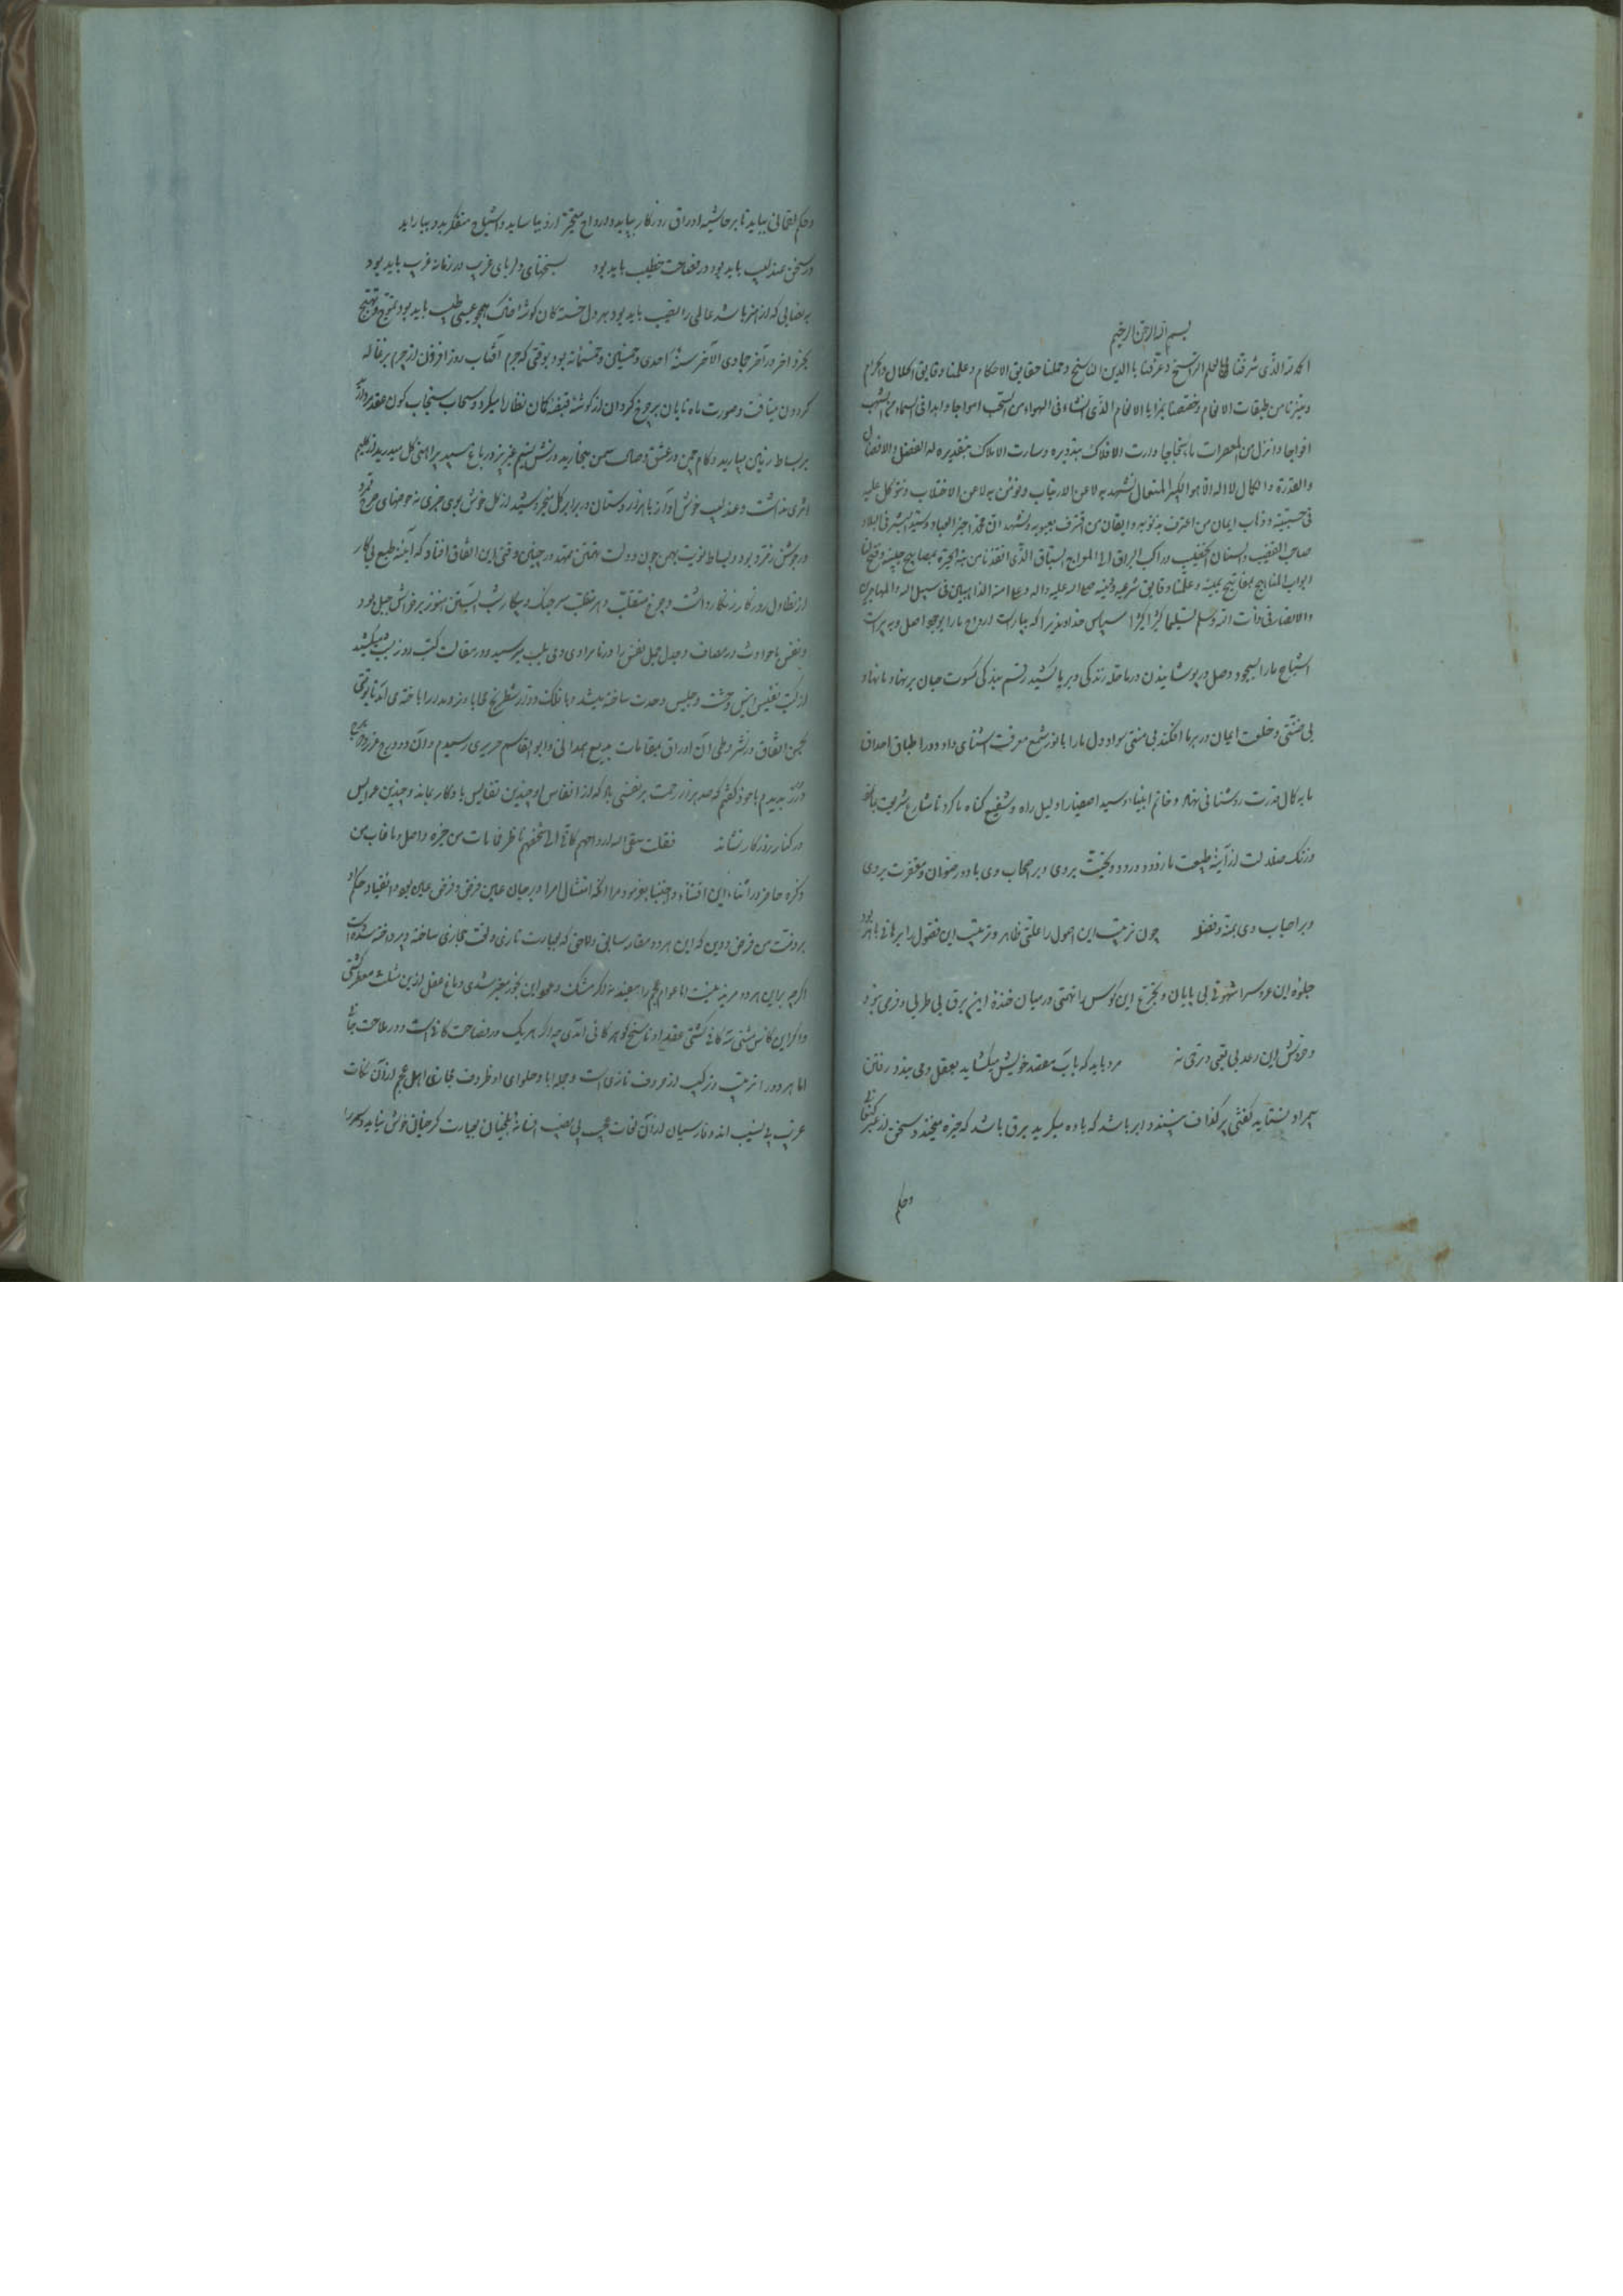 بسم الله الرحمن الرحیم
الحمد لله الذی شرفنا بالعلم الراسخ و عرفنا بالدین الناسخ و حملنا حقایق الاحکام و علمنا دقایق الحلال و الحرام
و میزنا من طبقات الانام و خصصنا بمزایا الانعام الذی انشاء فی الهواء من السحب امواجا و ابدا فی السماء من الشهب
افواجا و انزل من المعصرات ماء ثجاجا دارت الافلاک بتدویره و سارت الاملاک بتقدیره له الفضل و الافضال
و القدرة و الکمال لا اله الا هو الکبیر المتعال نشهد به لا عن الارتیاب و نؤمن به لا عن الاختلاب و نتوکل علیه
فی ایمان من اعترف بذنوبه و ایقان من اقترف بعیوبه و نشهد ان محمدا خیر العباد
صاحب القضیب و راکب البراق الی السبع الطباق الذی انقذنا من الحیرة بمصابیح و فتح لنا
ابواب المناجح بمفاتیح یمینه و علمنا دقایق شرعه و دینه صلی الله علیه و اله و علی امته الذاهبین فی سبیل الله و المهاجرین
و الانصار فی ذات الله و سلم تسلیما کثیرا کثیرا سپاس خداوندیرا که بیاراست ارواح ما را بوجود اصل و بپیراست
اشباح ما را بسجود وصل و در پوشانیدن ما حله زندگی و بر ما کشید رقم بندگی کسوت جان بر نهاد ما نهاد
بی ضنتی و خلعت ایمان در بر ما افکند بی منتی سواد دل ما را با نور شمع معرفت اشنائی داد و در اطباق احداق
ما به کمال قدرت روشنائی نهاد و خاتم انبیاء و سید اصفیا را دلیل راه و شفیع گناه ما کرد تا شارع شریعت بما نمود
و زنگ ضلالت از آینه طبیعت ما زدود درود و تحیت بروی و بر اصحاب وی باد و رضوان و مغفرت بروی
و بر احباب وی بمنه و فضله چون ترتیب این اصول را علتی ظاهر و ترتیب این فصول را برهانی باهر بود
جلوه این عروس را شهوتی بی پایان و تجرع این کوس را نهمتی در میان خنده این برق بی طربی و فرحی نبود
و خروش این رعد بی تعبی و ترحی نه مرد باید که باب مقصد خویش میگشاید بعقل و می بندد رفتن
بمراد نستاید گفتنی پر گزاف نپسندد ابر باشد که یاوه میگرید برق باشد که خیره میخندد سخن از عبر کنعانی
و حکم
و حکم لقمانی بباید تا بر حاشیه اوراق روزگار بپاید و ارواح متحیر از او بیاساید و اشباح متفکر بدو بیاراید
در سخن عندلیب باید بود در فصاحت خطیب باید بود سخنهای دلربای غریب در زمانه غریب باید بود
به نصابی که از هنر باشد عالمی را نصیب باید بود بر دل خستگان گوشه خاک همچو عیسی طبیب باید بود تموج و تهیج
بحر و اخر در آخر جمادی الآخر سنه احدی و خمسین و خمسمائه بود بوقتی که جرم آفتاب روز افزون از چرم بزغاله
گردون میتافت و صورت ماه تابان بر چرخ گردان از گوشه قبضه کمان نظاره میکرد و سحاب سنجاب گون عقد مروارید
بر بساط زمین میبارید و کام چمن در عشق وصال سمن میخارید در نشر نسیم عنبر بیز در باغ سپید پیراهنی گل میدرید از گلیم
اثری نداشت و عندلیب خوش آواز با هزار دستان در برابر گل نمیخروشید از گل خوش بوی خبری نه حوضهای
در جوشش زمرد بود و بساط نوبت بهمن چون دولت تهمتن ممهد در چنین وقتی این اتفاق افتاد که آینه طبع بیکار
از تطاول روزگار زنگار داشت و چرخ متقلب و دهر متغلب سر جنگ و پیکار شب آبستن هنوز بر خوابش حبل بود
و نفس با حوادث در مصاف و جدل جمل نفس را در نامرادی وی بلب میرسید و در مقالت کتب روز بشب میکشید
از کتب نفیس انیس وحشت و جلیس وحدت ساخته میشد و با فلک دوتا شطرنج محابا و نرد مدارا باخته می آمد تا بوقتی
بحسن اتفاق در نشر و طی آن اوراق بمقامات بدیع همدانی و ابو القاسم حریری رسیدم و آن دو درج غرر
و درر بدیدم با خود گفتم که صد هزار رحمت بر نفسی باد که از انفاس او چندین نفایس یادگار بماند و چندین عرایس
در کنار روزگار نشاند فقلت سقی الله ارواحهم کانی الی شخصهم ناظر فما مات من خیره واصل و ما غاب من
ذکره حاضر در اثناء این اقتناء و اجتنا بفرمود مرا انکه امتثال امر او بر جان عین فرض و فرض عین بود و انقیاد حکم او
بر وقت من فرض و دین که این هر دو مقامه سابق و لاحق که بعبارت تازی و لغت حجازی ساخته و پرداخته شده است
اگر چه بر این هر دو مزید نیست اما عوام عجم را مفید نه اگر مشک و عود این بخور معنبر شدی دماغ عقل از این مثلث معطر گشتی
و اگر این کاس مثنی سه گانی گشتی عقد او ناسخ گوهر کانی آمدی چه اگر هر یک در فصاحت کانی است و در ملاحت جانی
اما هر دو را ترتیب و ترکیب از حروف تازی است و جمله ابا و حلوای او ظروف حجازی اهل عجم از آن نکات
غریب بی نسیب اند و فارسیان از آن لغات عجیب بی نصیب افسانه بلخیان بعبارت کرخیان خوش نیاید و سمر